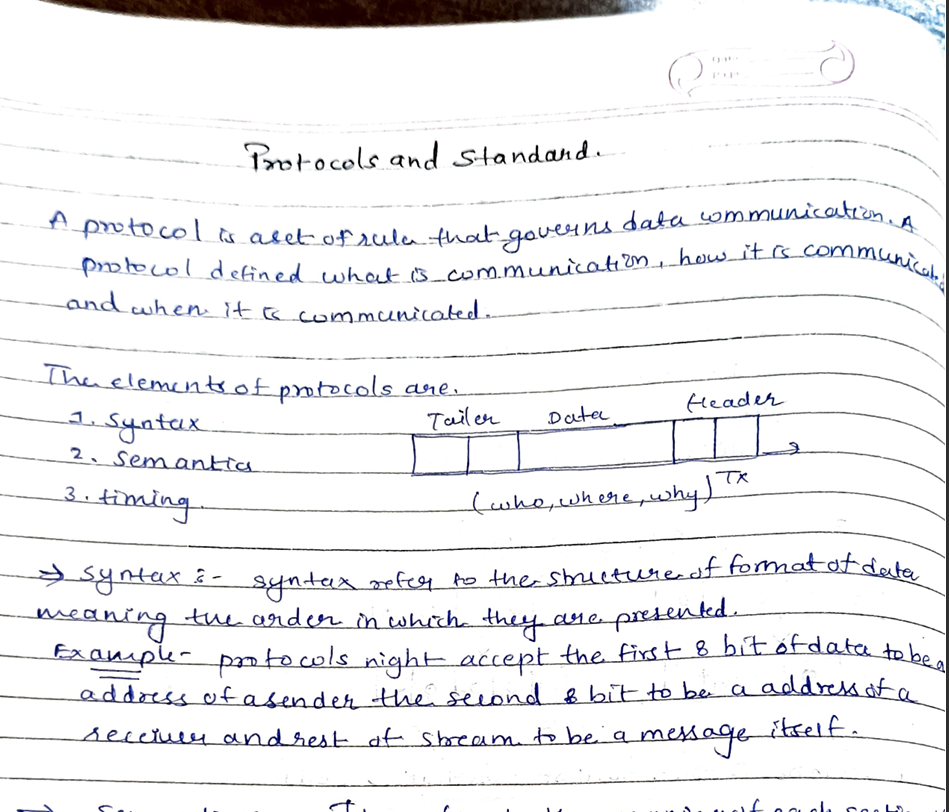 Protocols and Standard.
A protocol is a set of rule that governs data communication. A
protocol defined what is communication, how it is communicated
and when it is communicated.
The elements of protocols are.
1. Syntax
2. Semantics
3. timing.
Tailer Data Header
(who, where, why) Tx
⇒ Syntax :- syntax refer to the structure of format of data
meaning the arder in which they are presented.
Example - protocols night accept the first 8 bit of data to be a
address of a sender the second 8 bit to be a address of a
receiver and rest of stream to be a message itself.